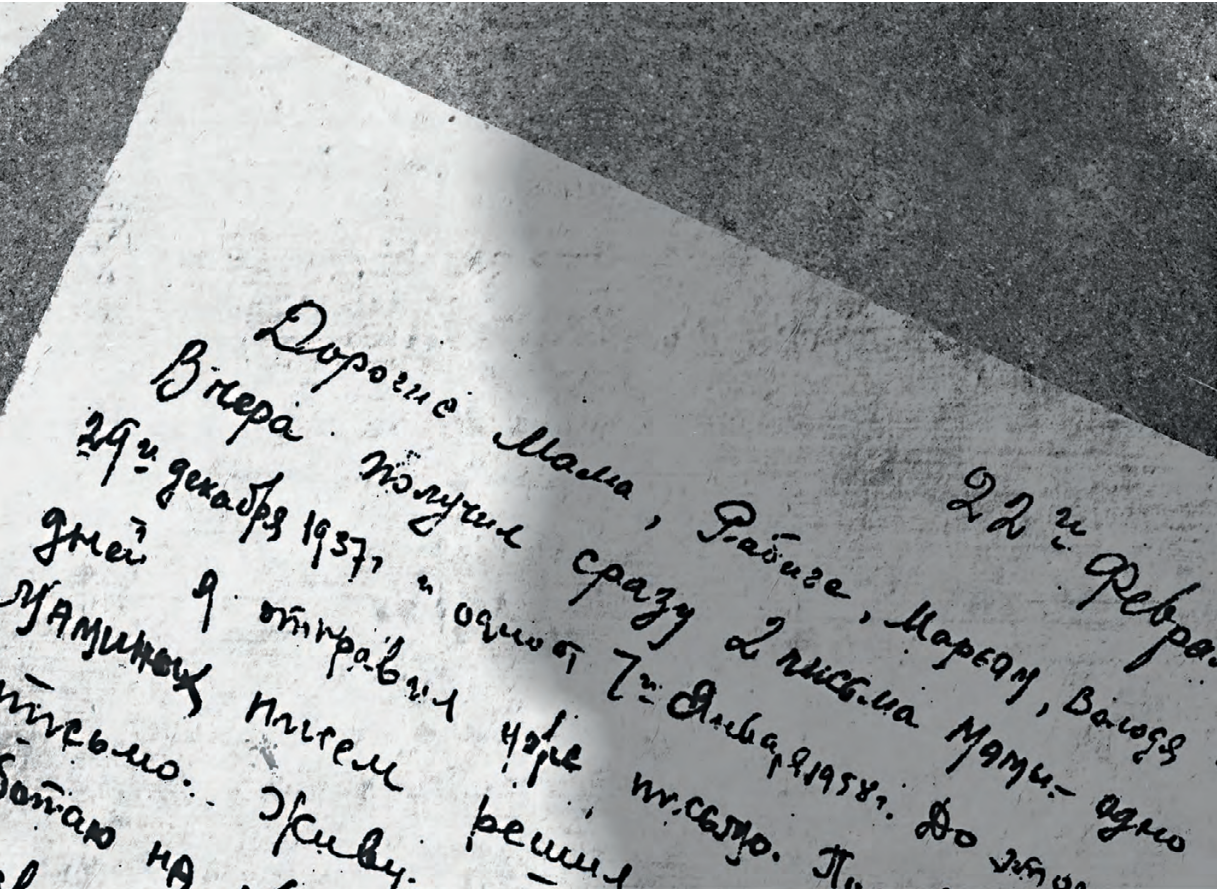 22го Февра
Дорогие Мама, Рабига, Марьям, Володя
Вчера получил сразу 2 письма Мамы - одно
29го декабря 1937г и одно от 7го Января 1938г. До
дней я отправил письмо.
Маминых писем решил
письмо. Живу.
ботаю на